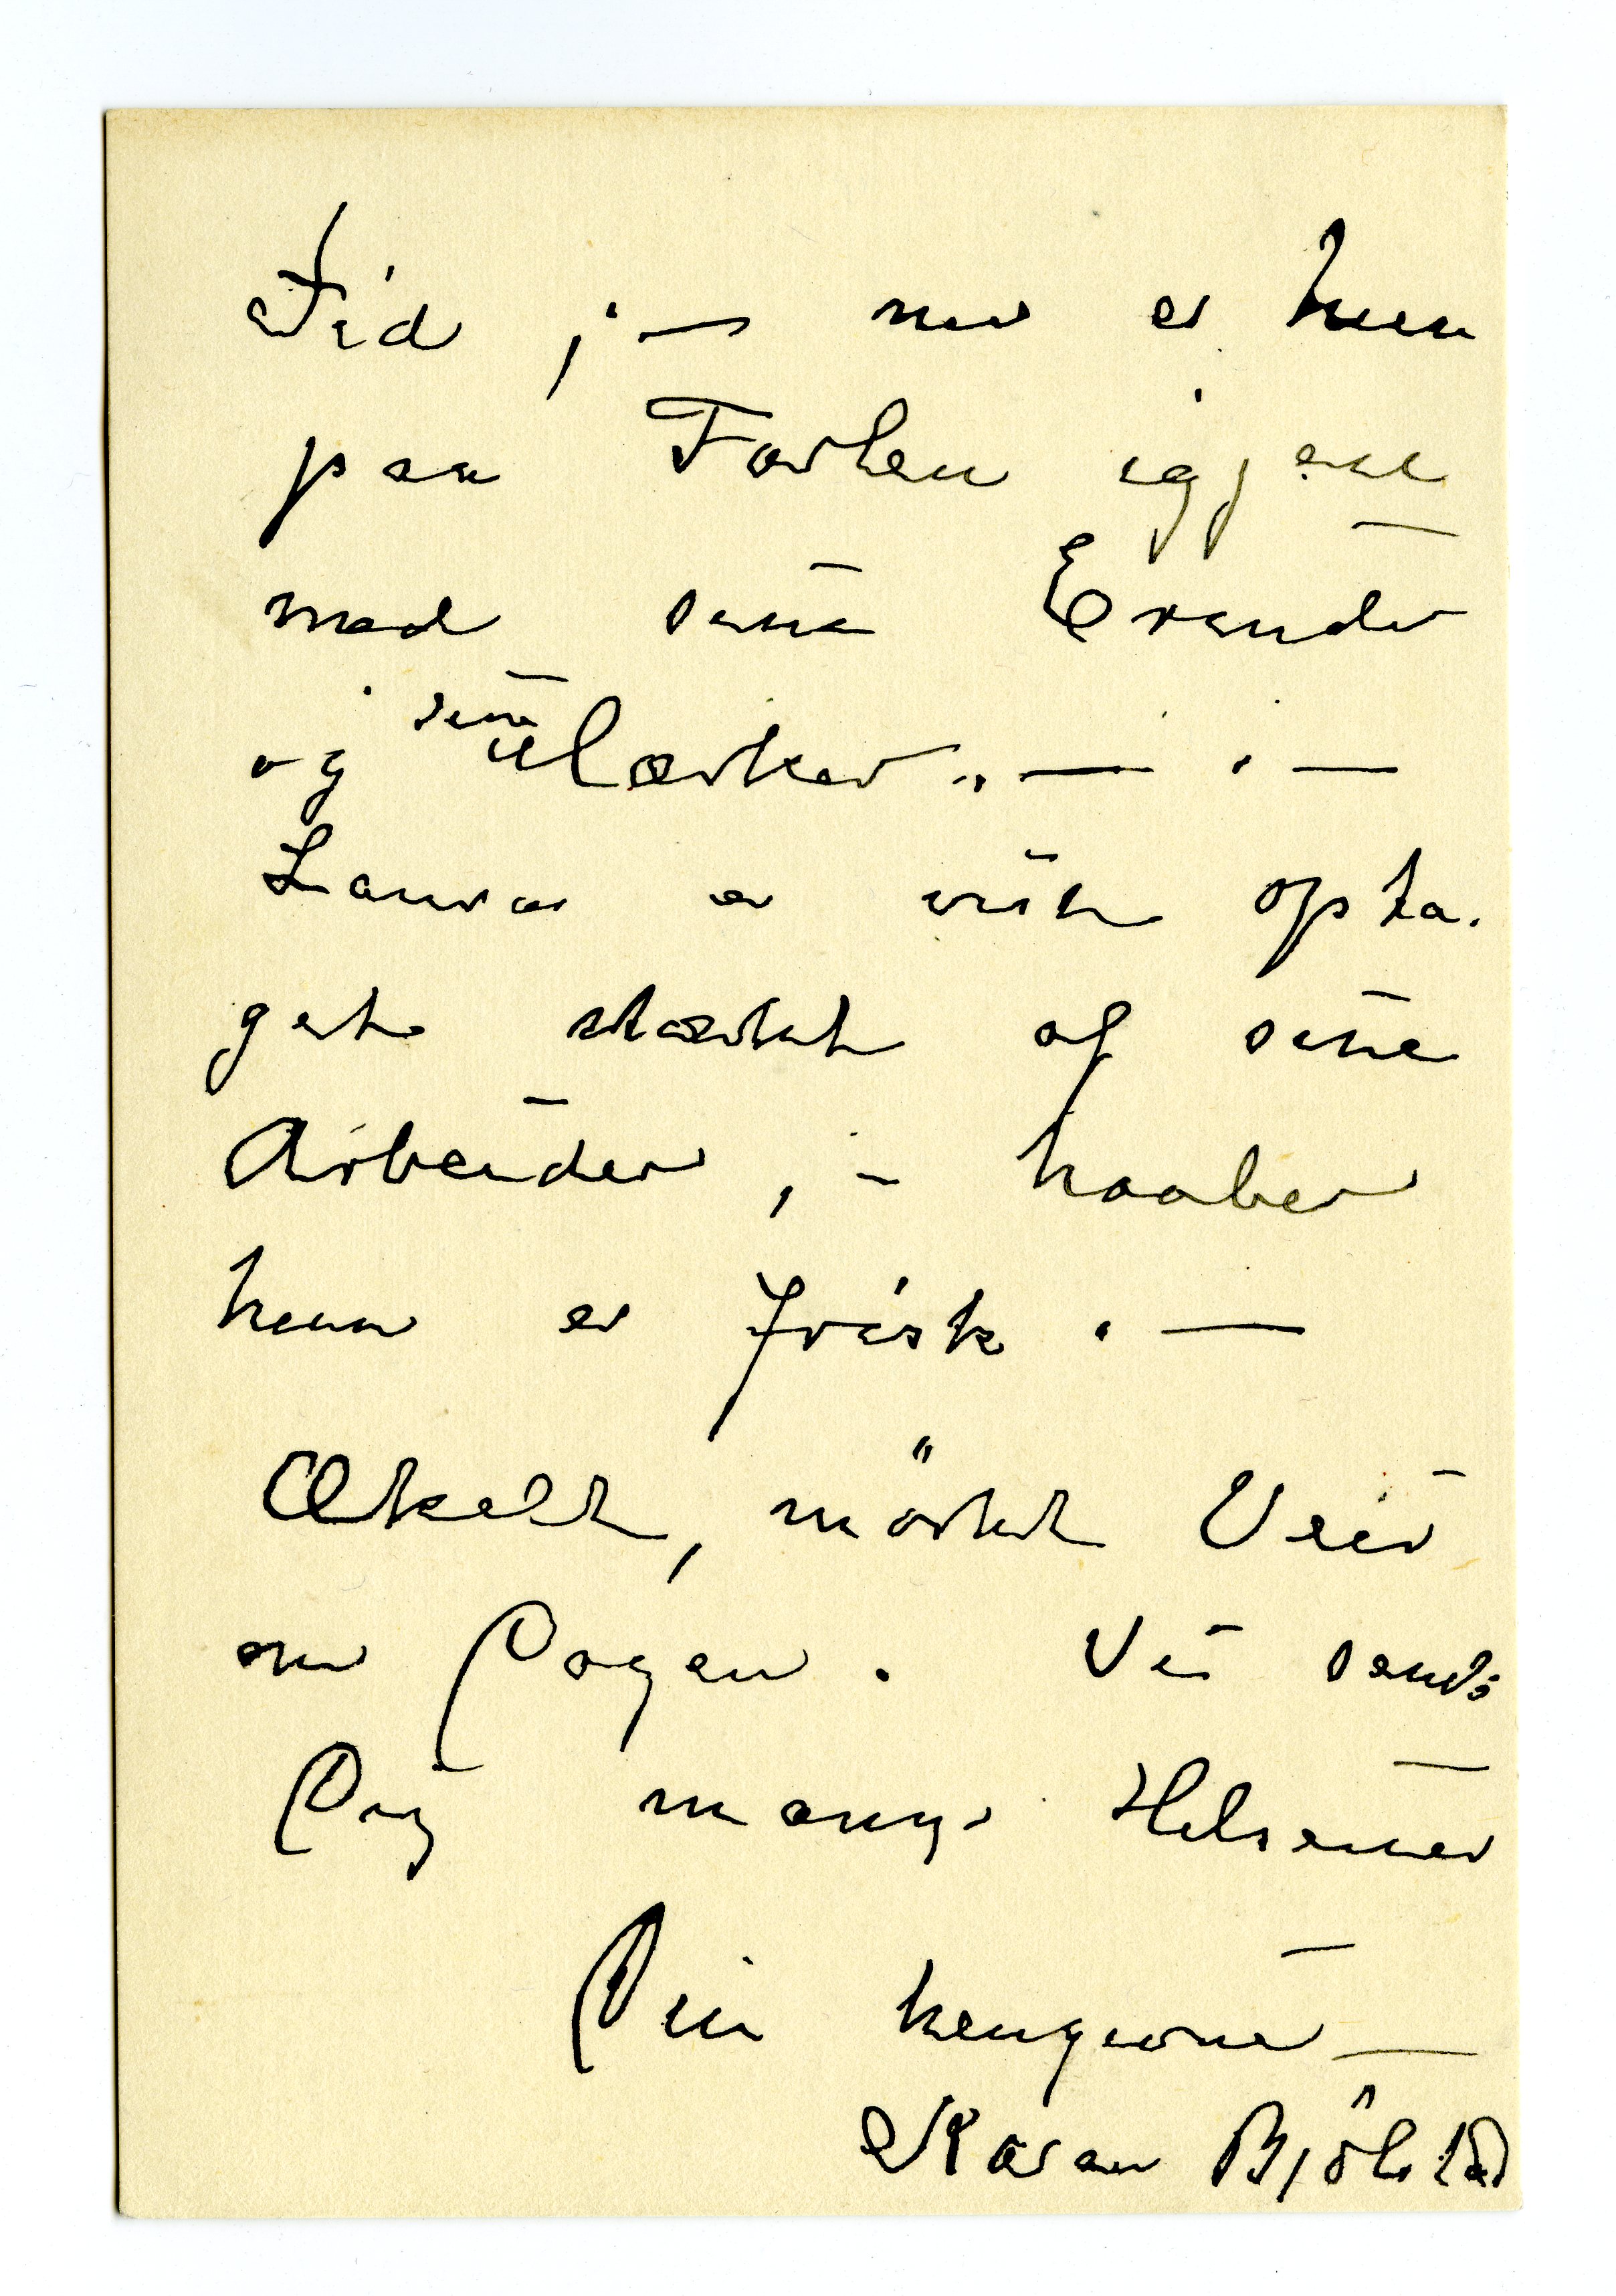 Tid ; — nu er hun
paa Farten igjen
med sine Erinder
og sine Mærker. — . —
Laura er visst opta-
get stærkt af sine
Arbeider, - haaber
hun er frisk . —
Ækelt, mörkt Veir
om Dagen . Vi sender
Dig mange Helsener
Din hengivne —
Karen Bjölstad